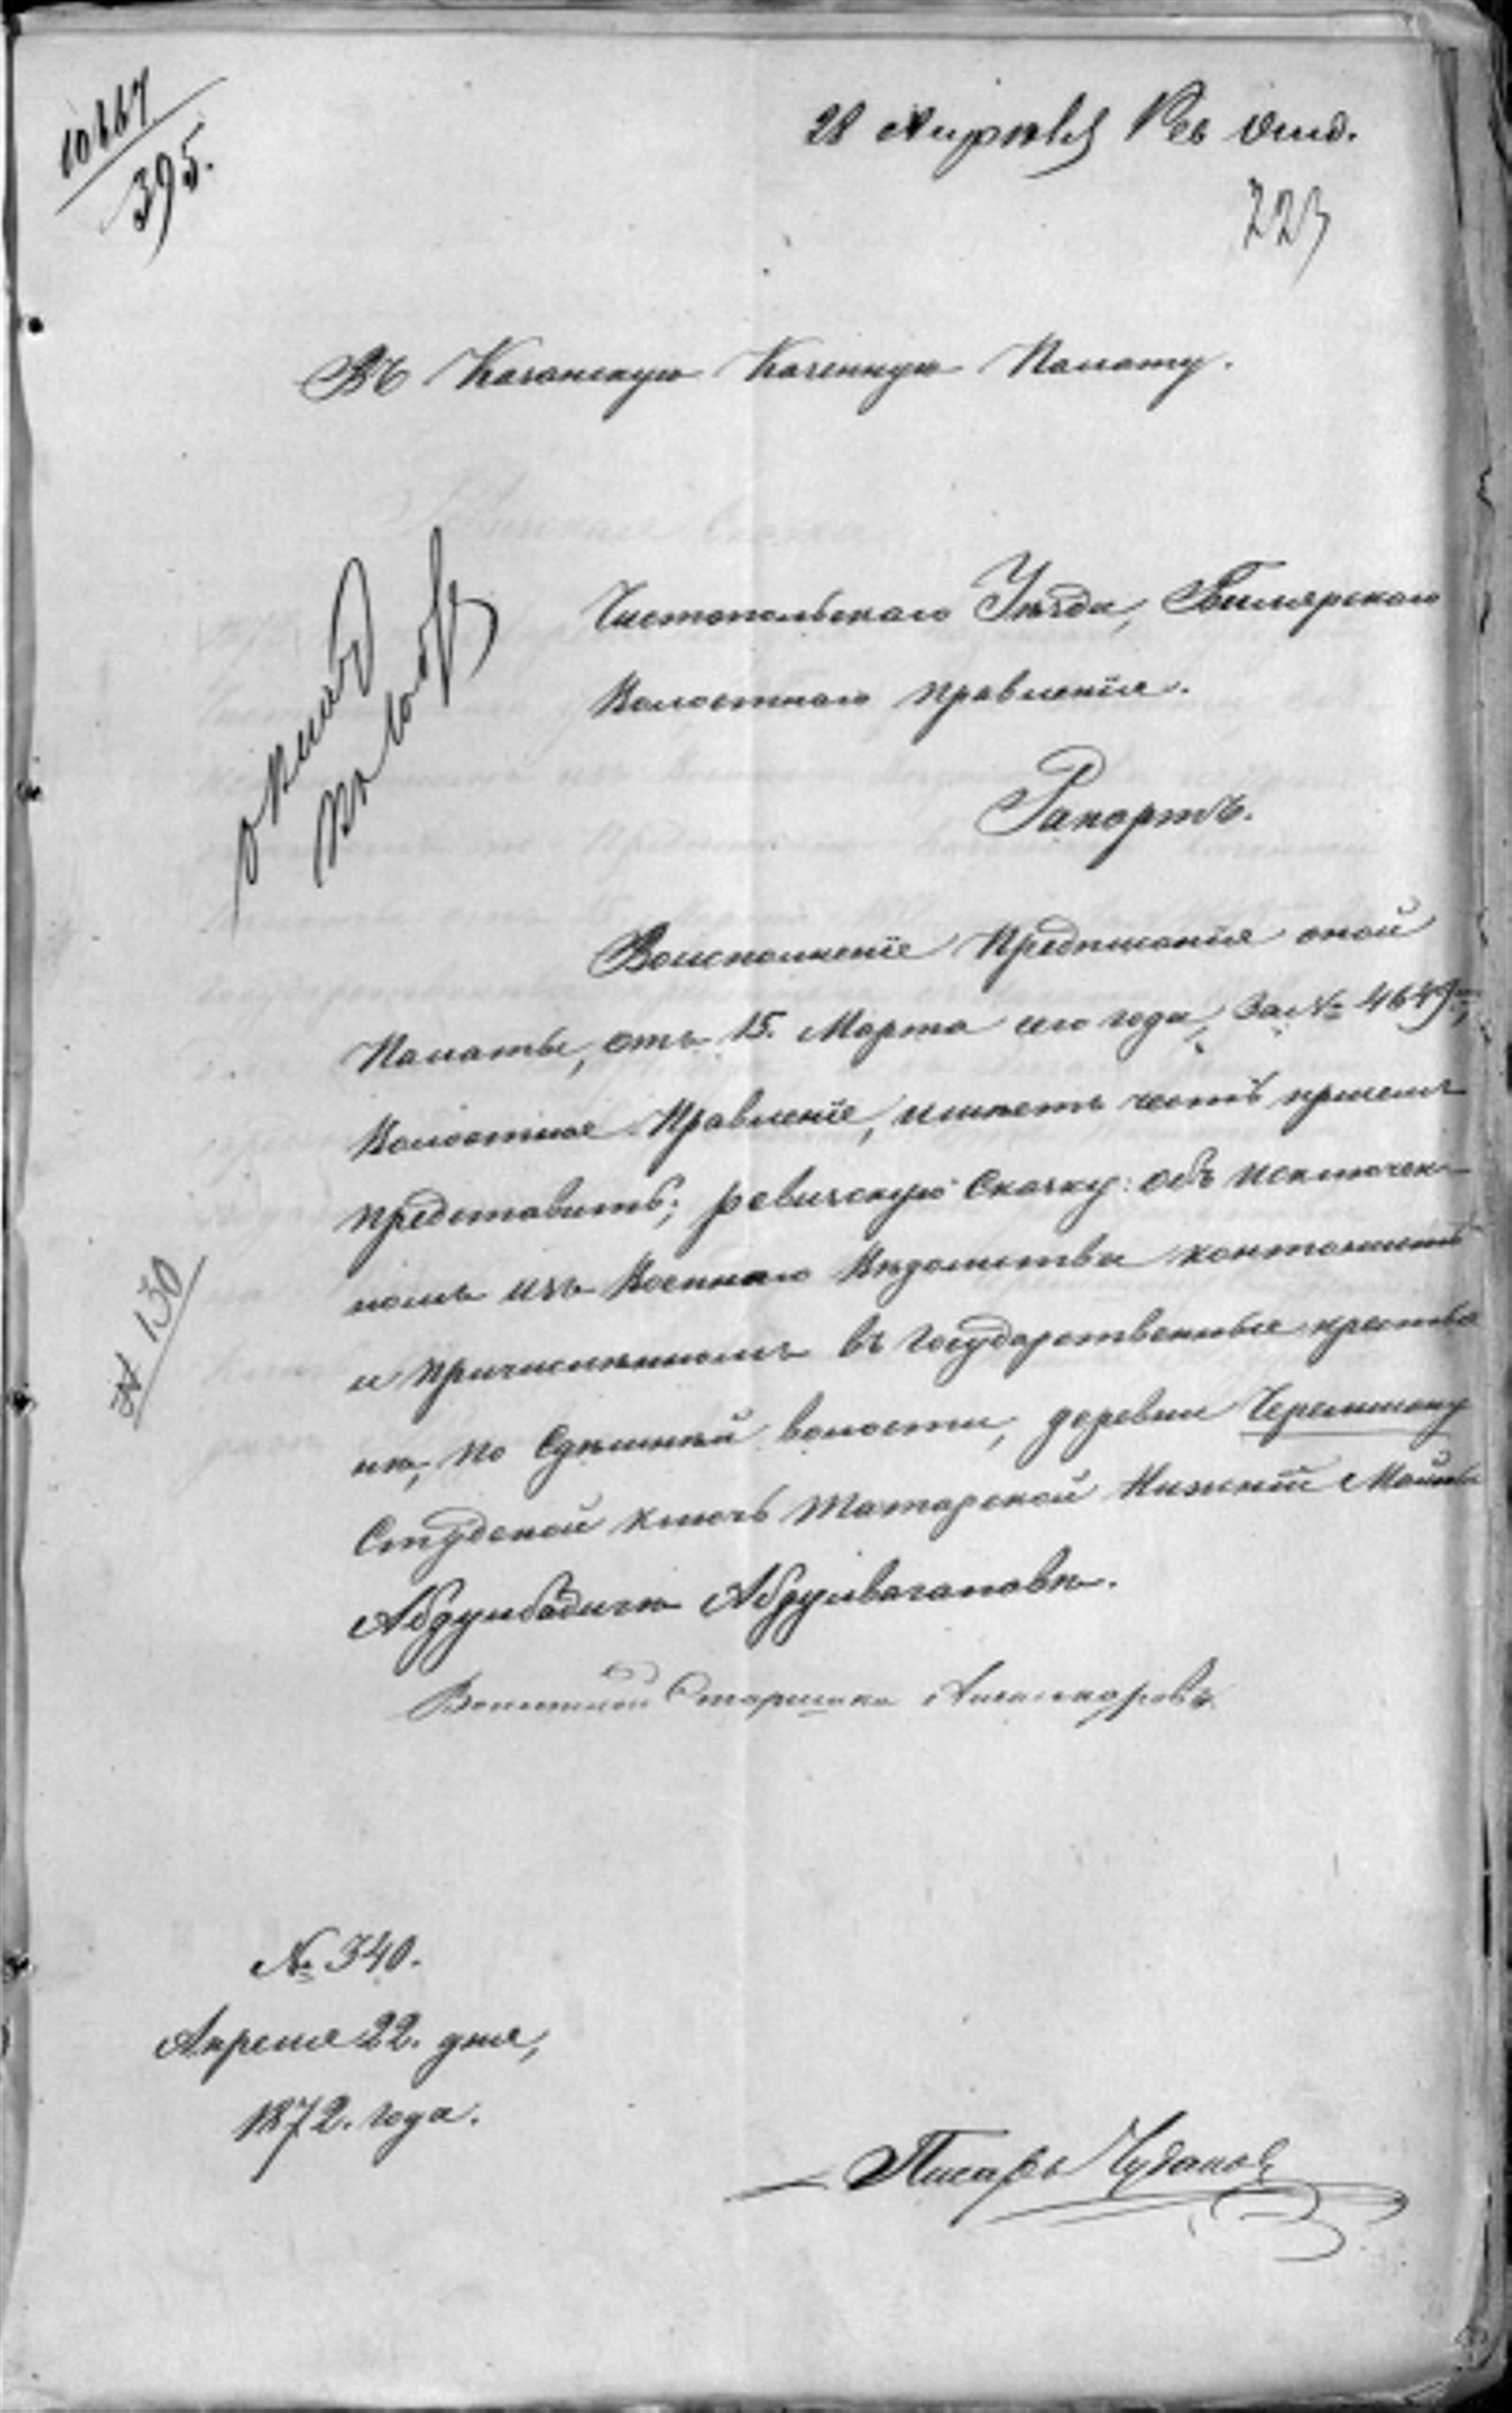 10667
395.
28 Апрѣля Рев Отд.
223
Въ Казанскую Казенную Палату.
Чистопольскаго Уѣзда, Билярскаго
Волостнаго Правленія.
Рапортъ.
Воисполненіе Предписанія оной
Палаты, отъ 15. Марта сего года, За № 4649,
Волостное Правленіе, имѣетъ честь присемъ
представить; ревизскую Сказку: объ исключен-
номъ изъ Военнаго Вѣдомства кантонистѣ
и причисленномъ въ Государственные крестья
не, по Сдѣшнѣй волости, деревни Черемшану
Студеной ключь Татарской Нижній Майны
Абдулбадигѣ Абдулвагаповѣ.
Волостной Старшина
№ 130
№ 340.
Апреля 22. дня,
1872. года.
Писарь Чуданов